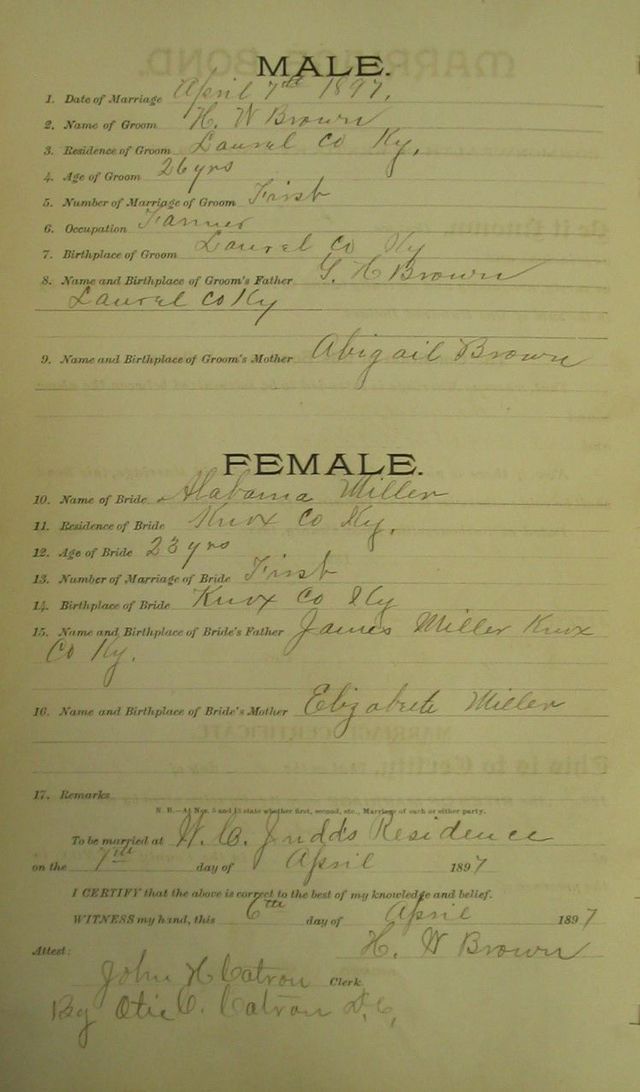 MALE.
1. Date of Marriage April 7th 1897.
2. Name of Groom H. W Brown
3. Residence of Groom Laurel Co Ky.
4. Age of Groom 26 yrs
5. Number of Marriage of Groom First
6. Occupation Farmer
7. Birthplace of Groom Laurel Co Ky
8. Name and Birthplace of Groom's Father G. H Brown
Laurel Co Ky
9. Name and Birthplace of Groom's Mother Abigail Brown
FEMALE.
10. Name of Bride Alabama Miller
11. Residence of Bride Knox Co Ky.
12. Age of Bride 23 yrs
13. Number of Marriage of Bride First
14. Birthplace of Bride Knox Co Ky
15. Name and Birthplace of Bride's Father James Miller Knox
Co Ky.
16. Name and Birthplace of Bride's Mother Elizabeth Miller
17. Remarks
N. B.—At Nos. 5 and 13 state whether first, second, etc., Marriage of each or either party.
To be married at W. C. Judds Residence
on the 7th day of April 1897
I CERTIFY that the above is correct to the best of my knowledge and belief.
WITNESS my hand, this 6th day of April 1897
H. W Brown
Attest:
John H Catron Clerk
By Otis C. Catron D.C.